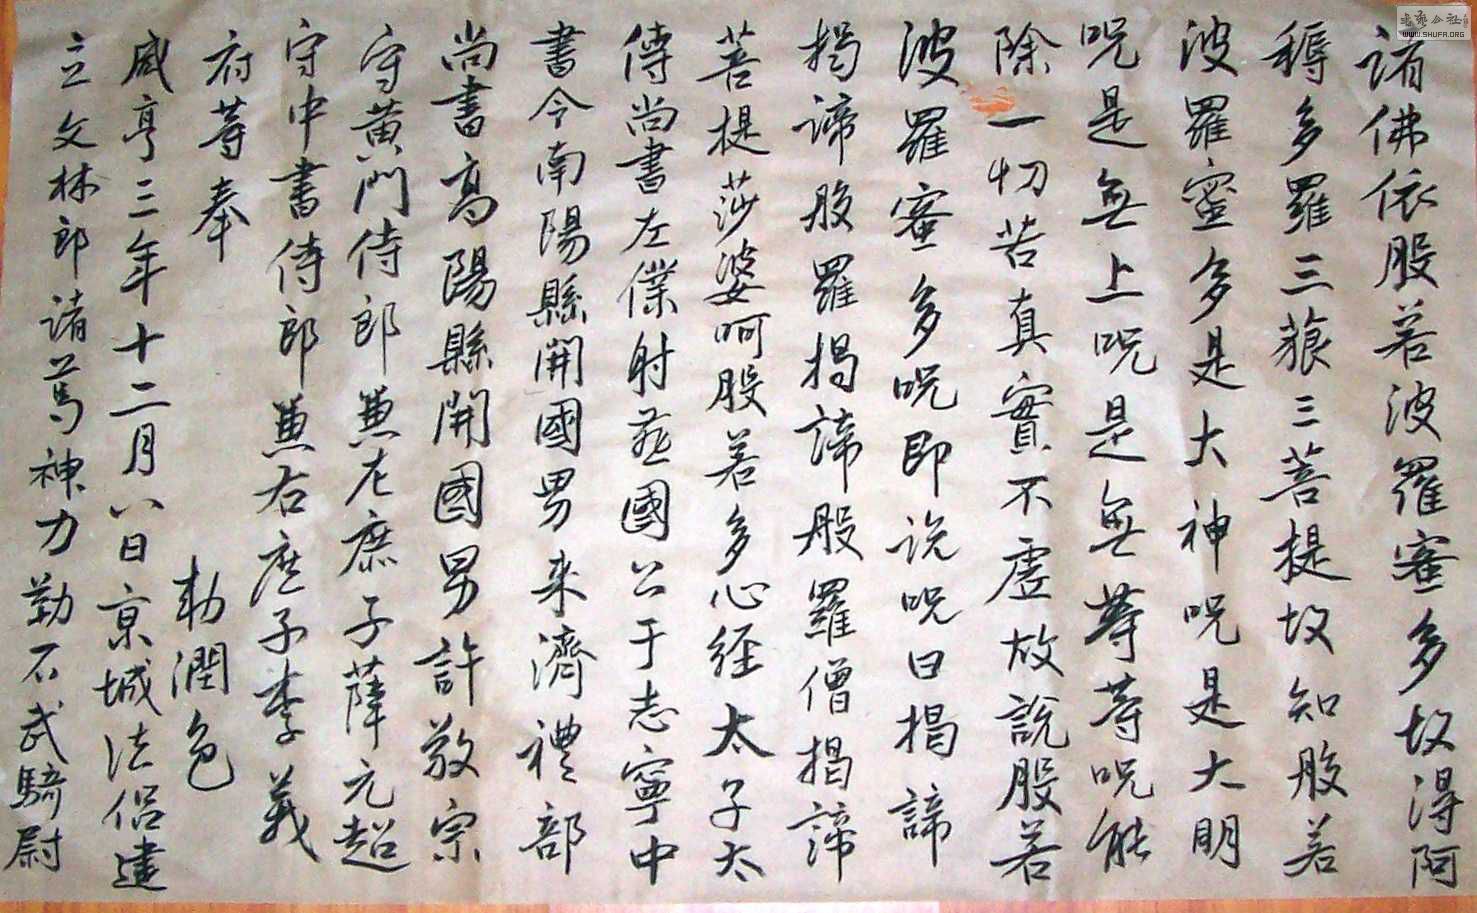 諸佛依般若波羅蜜多故得阿
耨多羅三藐三菩提故知般若
波羅蜜多是大神咒是大明
咒是無上咒是無等等咒能
除一切苦真實不虛故說般若
波羅蜜多咒即说咒曰揭諦
揭諦般羅揭諦般羅僧揭諦
菩提莎婆呵般若多心經太子太
傅尚書左僕射燕國公于志寧中
書令南陽縣開國男来濟禮部
尚書高陽縣開國男許敬宗
守黄門侍郎兼左庶子薛元超
守中書侍郎兼右庶子李義
府等奉
勅潤色
咸亨三年十二月八日京城法侣建
立文林郎諸葛神力勒石武騎尉
書藝公社
WWW.SHUFA.ORG